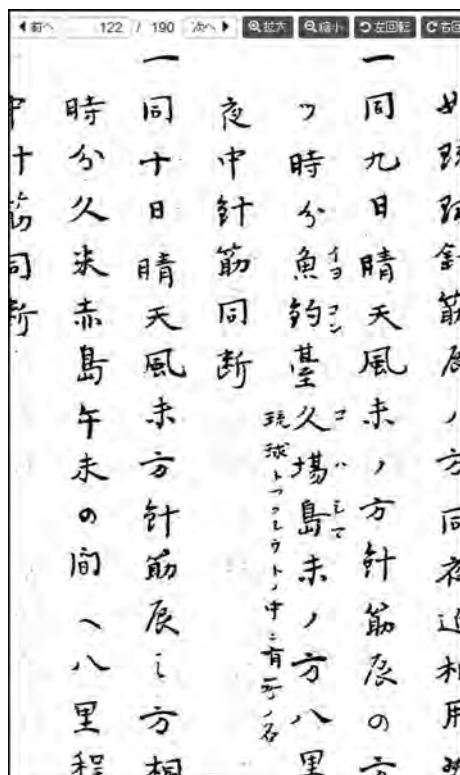 前へ 122 / 190 次へ 拡大 縮小 左回転 右回
筋辰ノ方同夜
一同九日晴天風未ノ方針筋辰の方
ツ時分魚釣臺久場島未ノ方八里
イヨコン
コバしま
琉球
中ニ有
夜中針筋同断
一同十日晴天風未方針筋辰之方相
時分久米赤島午未の間へ八里程
中十筋同断